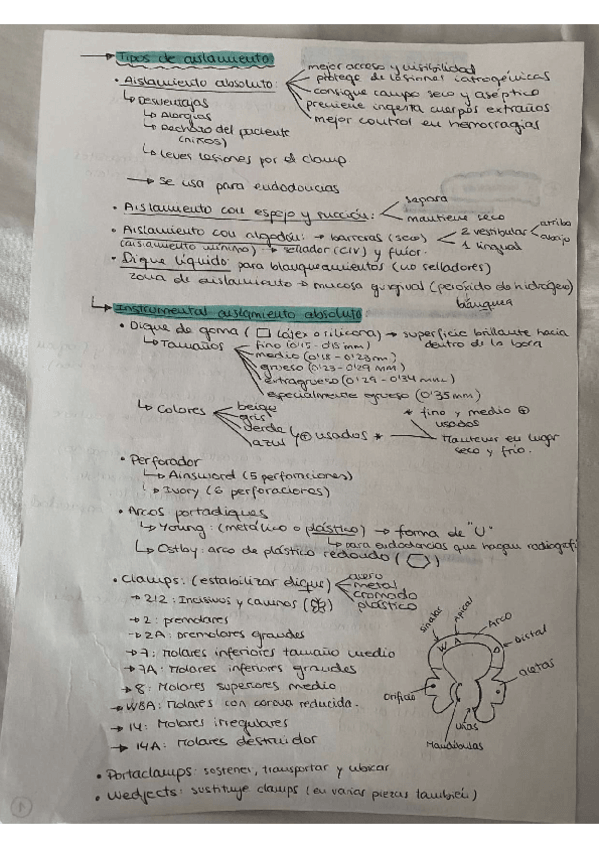 → Tipos de aislamiento
mejor acceso y visibilidad
• Aislamiento absoluto: protege de lesiones iatrogénicas
consigue campo seco y aséptico
↳ Desventajas previene ingesta cuerpos extraños
↳ Alergias mejor control en hemorragias
↳ Rechazo del paciente
(niños)
↳ Leves lesiones por el clamp
→ se usa para endodoncias
• Aislamiento con espejo y succión: separa
mantiene seco
• Aislamiento con algodón: → barreras (seco) 2 vestibular arriba abajo
1 lingual
(aislamiento mínimo) → sellador (CIV) y fluor.
• Dique líquido: para blanqueamientos (no selladores)
zona de aislamiento → mucosa gingival (peróxido de hidrógeno)
blanquea
↳ Instrumental aislamiento absoluto:
• Dique de goma (□ látex o silicona) → superficie brillante hacia
dentro de la boca
↳ Tamaños fino (0'15 - 0'18 mm)
medio (0'18 - 0'23 mm)
grueso (0'23 - 0'29 mm)
extragrueso (0'29 - 0'34 mm)
especialmente grueso (0'35 mm)
↳ Colores beige
gris
verde y ⊕ usados *
azul
* fino y medio ⊕
usados
Mantener en lugar
seco y frío.
• Perforador
↳ Ainsword (5 perforaciones)
↳ Ivory (6 perforaciones)
• Arcos portadiques
↳ Young: (metálico o plástico) → forma de "U"
↳ para endodoncias que hagan radiografí
↳ Ostby: arco de plástico redondo
• Clamps: (estabilizar dique) acero
metal
cromado
plástico
→ 212: Incisivos y caninos
→ 2: premolares
→ 2A: Premolares grandes
→ 7: Molares inferiores tamaño medio
→ 7A: Molares inferiores grandes
→ 8: Molares superiores medio
→ W8A: Molares con corona reducida.
→ 14: Molares irregulares
→ 14A: Molares destruidor
Apical
Arco
Distal
aletas
Orificio
uñas
Mandíbulas
W A D
• Portaclamps: sostener, transportar y ubicar
• Wedjects: sustituye clamps (en varias piezas también)
1